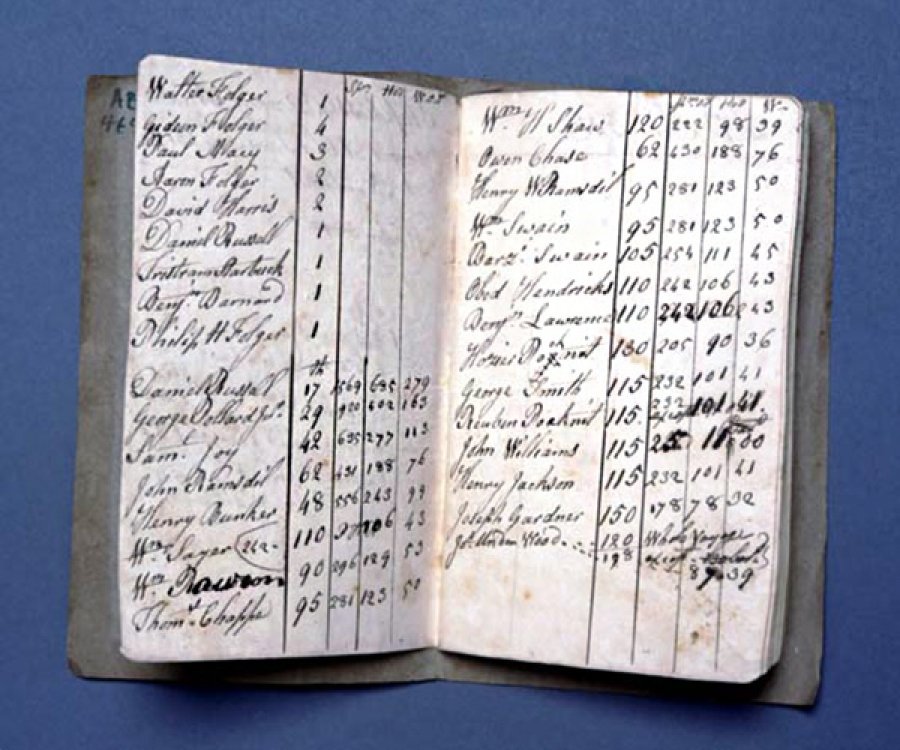 Walter Folger 1
Gideon Folger 4
Paul Macy 3
Aaron Folger 2
David Harris 2
Daniel Russell 1
Tristram Starbuck 1
Benjn Barnard 1
Philip H Folger 1
Daniel Russell 17 1569 685 279
George Pollard Jr. 29 920 402 163
Saml. Joy 42 635 277 113
John Ramsdil 62 431 188 76
Henry Bunker 48 556 243 99
Wm Sayer 242 110 106 43
Wm Rawson 90 296 129 53
Thoms Chapple 95 281 123 50
Wm H Shaw 120 222 98 39
Owen Chase 62 430 188 76
Henry W Ramsdil 95 281 123 50
Wm Swain 95 281 123 50
Barzi Swain 105 254 111 45
Obed Hendricks 110 242 106 43
Benjn Lawrence 110 242 106 43
130 205 90 36
George Smith 115 232 101 41
Reuben 115 232 101 41
John Williams 115 25
Henry Jackson 115 232 101 41
Joseph Gardner 150 178 78 32
Wood 120 Whole Voyage
198 87 39